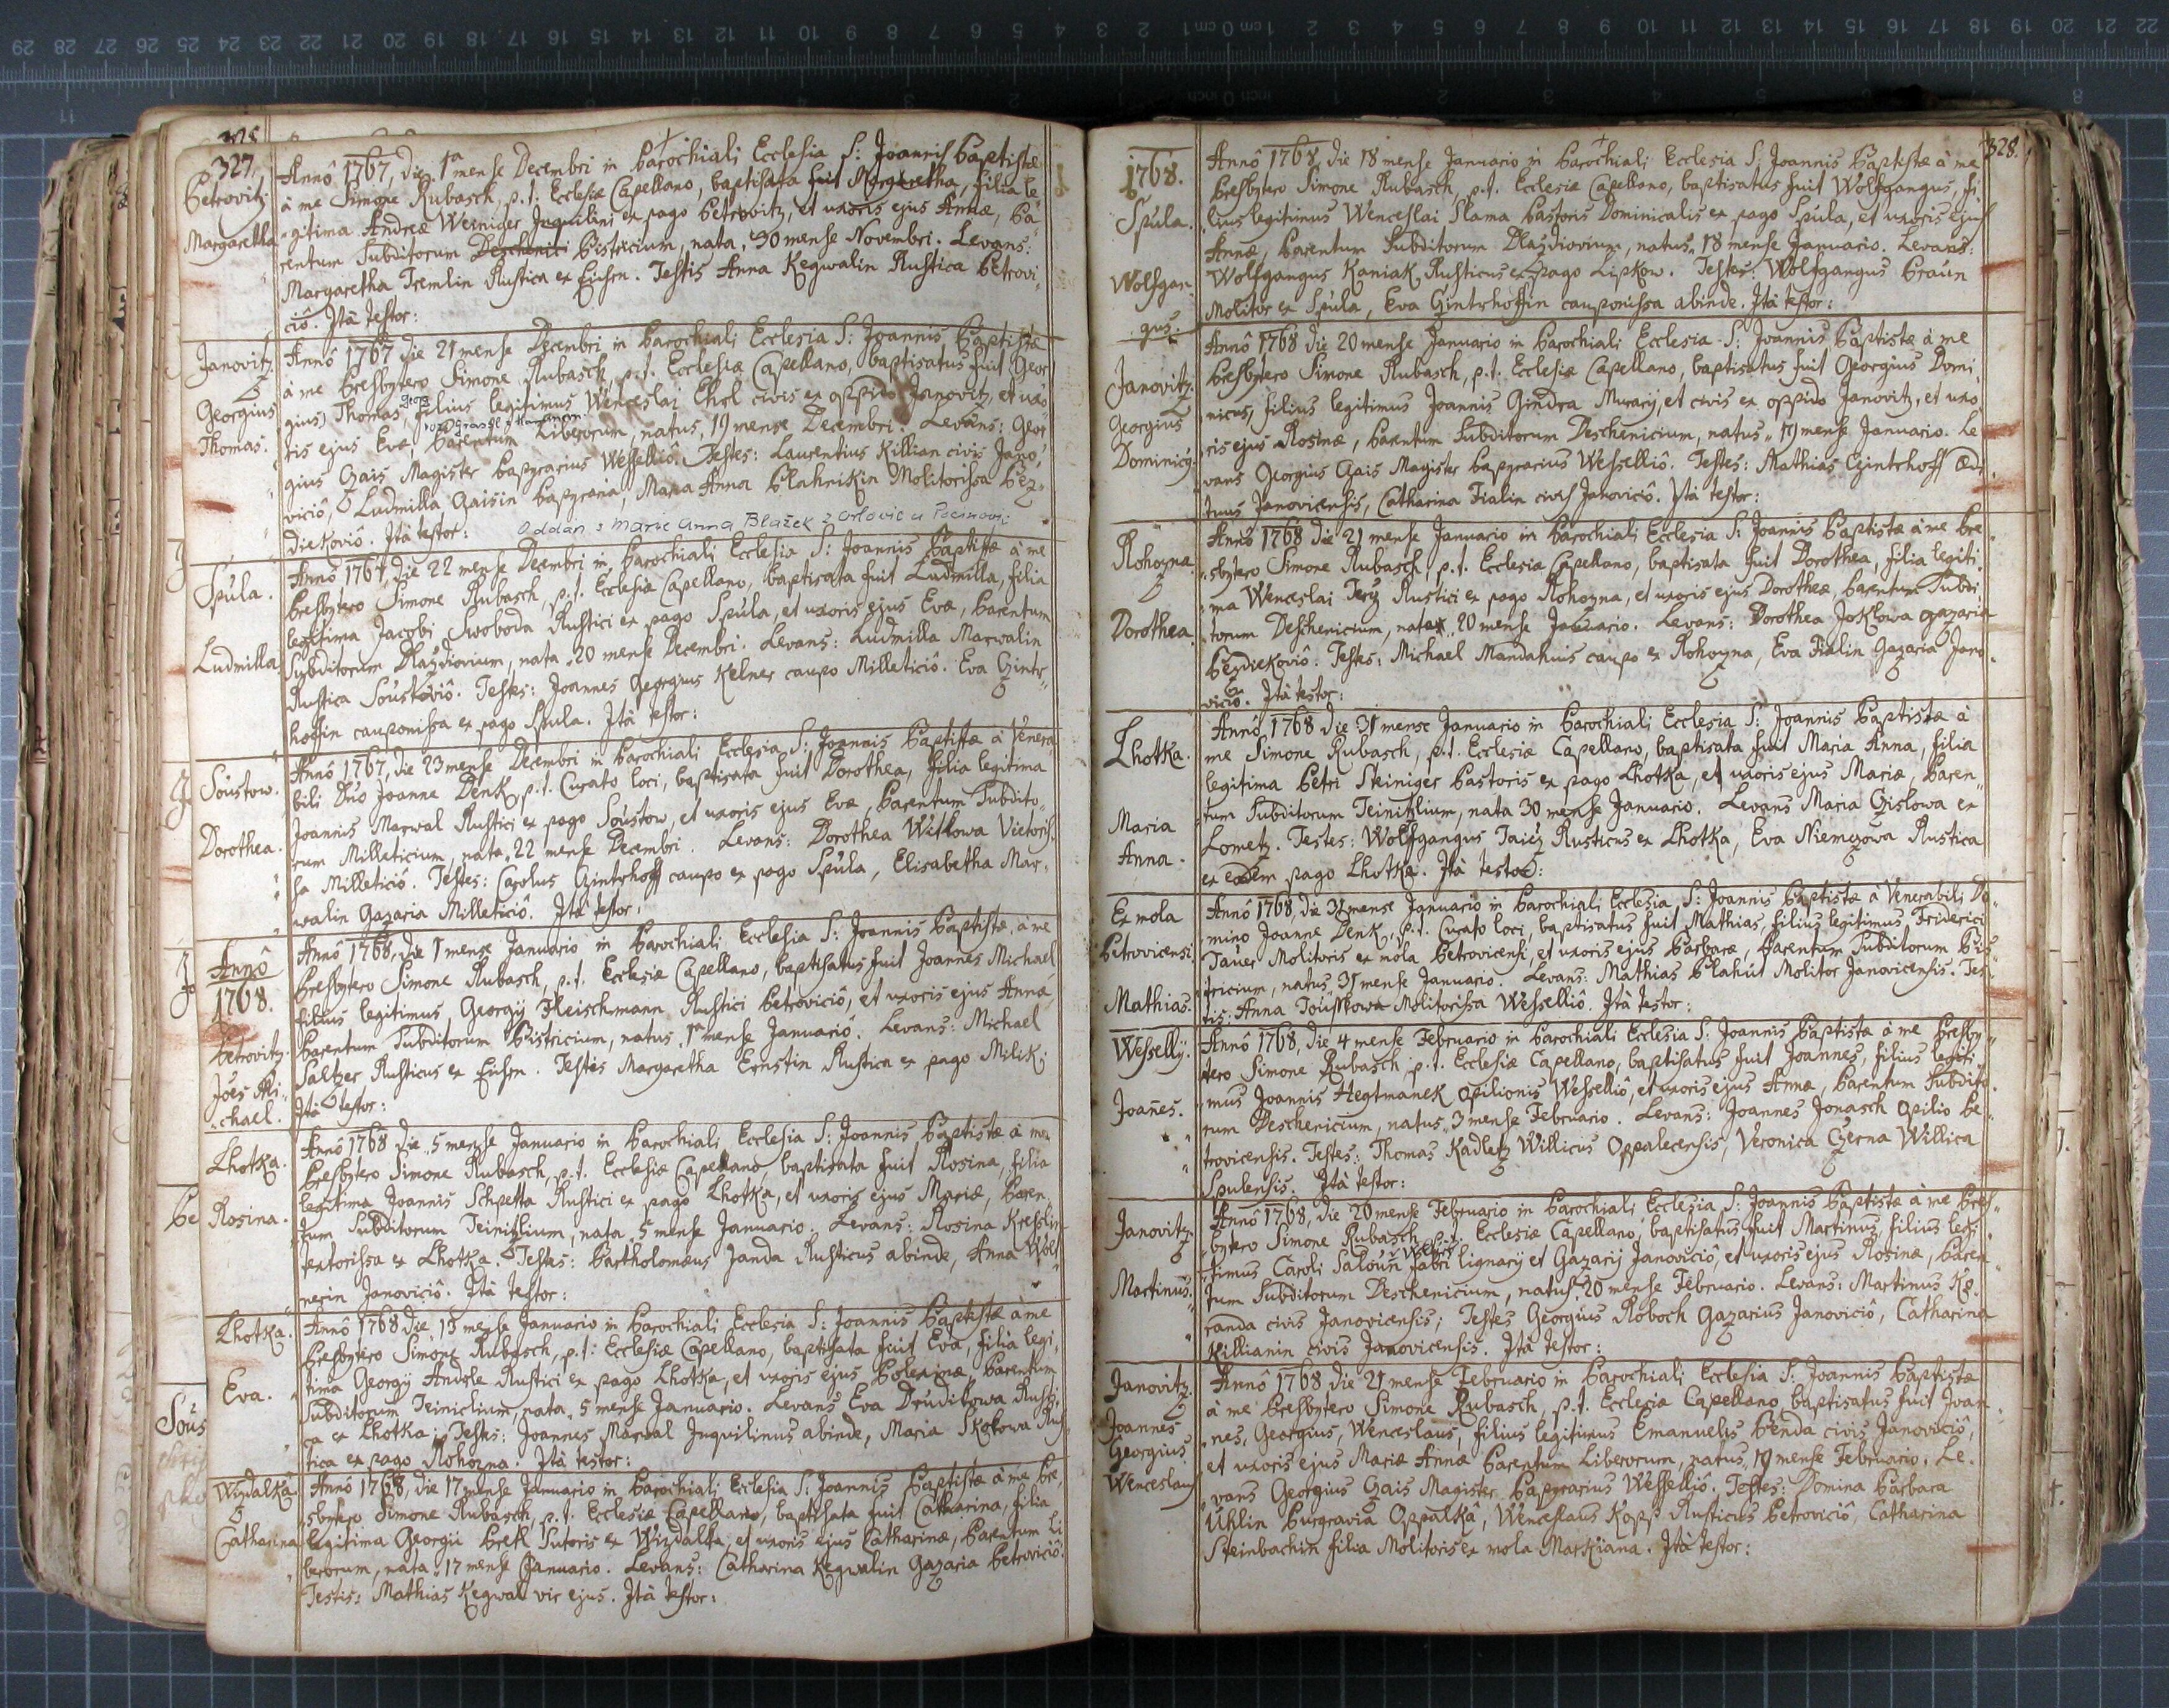 327.
Petrovitz
Margaretha
Annô 1767, die 1a mense Decembri in Parochiali Ecclesia S: Joannis Baptistæ
à me Simone Rubasch, p.t. Ecclesiæ Capellano, baptisata fuit Margaretha, filia le
gitima Andreæ Weiniger Inquilini ex pago Petrovitz, et uxoris ejus Annæ, Pa
rentum Subditorum Deschenici Bistricium, nata 30 mense Novembri. Levans:
Margaretha Tremlin Rustica ex Eisern. Testis Anna Kegwalin Rustica Petrovi
ciô. Ità testor:
Janovitz
Georgius
Thomas.
Annô 1767 die 21 mense Decembri in Parochiali Ecclesia S: Joannis Baptistæ
à me Presbytero Simone Rubasch, p.t. Ecclesiæ Capellano, baptisatus fuit Geor
gius Thomas, filius legitimus Wenceslai Chol civis ex oppido Janovitz, et uxo
ris ejus Evæ, Parentum Liberorum, natus, 19 mense Decembri. Levans: Geor
gius Gais Magister Papyrarius Wessellíô. Testes: Laurentius Killian civis Jano
viciô, Ludmilla Gaisin Papyraria, Maria Anna Plahnikin Molitorissa Bez
diekoviô. Ità testor:
oddán s Marie Anna Blažek z Orlovic u Pocinovic
Spúla.
Ludmilla
Annô 1767, die 22 mense Decembri in Parochiali Ecclesia S: Joannis Baptistæ à me
Presbytero Simone Rubasch, p.t. Ecclesiæ Capellano, baptisata fuit Ludmilla, filia
legitima Jacobi Swoboda Rustici ex pago Spúla, et uxoris ejus Evæ, Parentum
Subditorum Dlazdiovium, nata 20 mense Decembri. Levans: Ludmilla Marwalin
Rustica Soustoviô. Testes: Joannes Georgius Kelner caupo Milleticiô. Eva Gintr
hoffin cauponissa ex pago Spula. Ità testor:
Soustow.
Dorothea.
Annô 1767, die 23 mense Decembri in Parochiali Ecclesia S: Joannis Baptistæ à Venera
bili Dño Joanne Denk, p.t. Curato loci, baptisata fuit Dorothea, filia legitima
Joannis Marwal Rustici ex pago Soustow, et uxoris ejus Evæ, Parentum Subdito
rum Milleticium, nata 22 mense Decembri. Levans: Dorothea Witkowa Victoris
sa Milleticiô. Testes: Carolus Gintrhoff caupo ex pago Spúla, Elisabetha Mar
walin Gazaria Milleticiô. Ità testor:
Annô
1768.
Petrovitz.
Joes Mi
chael.
Annô 1768, die 1 mense Januario in Parochiali Ecclesia S: Joannis Baptistæ, à me
Presbytero Simone Rubasch, p.t. Ecclesiæ Capellano, baptisatus fuit Joannes Michael
filius legitimus, Georgij Fleischmann Rustici Petroviciô, et uxoris ejus Annæ
Parentum Subditorum Bistricium, natus 1a mense Januariô. Levans: Michael
Saltzer Rusticus ex Eisern. Testes Margaretha Ernstin Rustica ex pago Milik:
Ità testor:
Lhotka.
Rosina.
Annô 1768 die 5 mense Januario in Parochiali Ecclesia S: Joannis Baptistæ à me
Presbytero Simone Rubasch, p.t. Ecclesiæ Capellano baptisata fuit Rosina, filia
legitima Joannis Schpetta Rustici ex pago Lhotka, et uxoris ejus Mariæ, Paren
tum Subditorum Teinitzlium, nata 5 mense Januario. Levans: Rosina Kresslin
Textorissa ex Lhotka. Testes: Bartholomæus Janda Rusticus abinde, Anna
Janoviciô. Ità testor:
Lhotka.
Eva.
Annô 1768 die 13 mense Januario in Parochiali Ecclesia S: Joannis Baptistæ à me
Presbytero Simone Rubasch, p.t: Ecclesiæ Capellano, baptisata fuit Eva, filia legi
tima Georgij Andrle Rustici ex pago Lhotka, et uxoris ejus Polexinæ, Parentum
Subditorum Teiniclium, nata 5 mense Januario. Levans Eva Druditowa Rusti
ca ex Lhotka: Testes: Joannes Marwal Inquilinus abinde, Maria Skotowa Rus
tica ex pago Rohozna. Ità testor:
Wizdalka
Catharina
Annô 1768, die 17 mense Januario in Parochiali Ecclesia S: Joannis Baptistæ à me Pre
sbytero Simone Rubasch, p.t. Ecclesiæ Capellano, baptisata fuit Catharina, filia
legitima Georgii Prekl Sutoris ex Wizdalka, et uxoris ejus Catharinæ, Parentum Li
berorum, nata 17 mense Januario. Levans: Catharina Kegwalin Gazaria Petroviciô.
Testis: Mathias Kegwal vir ejus. Ità testor:
328.
1768.
Spúla.
Wolfgan
gus.
Annô 1768, die 18 mense Januario in Parochiali Ecclesia S: Joannis Baptistæ à me
Presbytero Simone Rubasch, p.t. Ecclesiæ Capellano, baptisatus fuit Wolfgangus, fi
lius legitimus Wenceslai Slama Pastoris Dominicalis ex pago Spúla, et uxoris ejus
Annæ, Parentum Subditorum Dlazdiovium, natus 18 mense Januario. Levans:
Wolfgangus Kaniak Rusticus ex pago Lipkow. Testes: Wolfgangus Braun
Molitor ex Spúla, Eva Gintrhoffin cauponissa abinde. Ità testor:
Janovitz
Georgius
Dominicg.
Annô 1768 die 20 mense Januario in Parochiali Ecclesia S: Joannis Baptistæ à me
Presbytero Simone Rubasch, p.t. Ecclesiæ Capellano, baptisatus fuit Georgius Domi
nicus, filius legitimus Joannis Gindra Murarij, et civis ex oppido Janovitz, et uxo
ris ejus Rosinæ, Parentum Subditorum Deschenicium, natus 19 mense Januario. Le
vans Georgius Gais Magister Papyrarius Wesselliô. Testes: Mathias Gintrhoff Ædi
tuus Janovicensis, Catharina Fialin civis Janoviciô. Ità testor:
Rohozna
Dorothea
Annô 1768 die 21 mense Januario in Parochiali Ecclesia S: Joannis Baptistæ à me Pre
sbytero Simone Rubasch, p.t. Ecclesiæ Capellano, baptisata fuit Dorothea, filia legiti
ma Wenceslai Terg Rustici ex pago Rohozna, et uxoris ejus Dorotheæ, Parentum Subdi
torum Deschenicium, nata 20 mense Januario. Levans: Dorothea Joklowa gazaria
Bezdiekoviô. Testes: Michael Mandahuis caupo ex Rohozna, Eva Fialin Gazaria Jano
viciô. Ità testor:
Lhotka.
Maria
Anna.
Annô 1768 die 31 mense Januario in Parochiali Ecclesia S: Joannis Baptistæ à
me Simone Rubasch, p.t. Ecclesiæ Capellano, baptisata fuit Maria Anna, filia
legitima Petri Steiniger Pastoris ex pago Lhotka, et uxoris ejus Mariæ, Paren
tum Subditorum Teinitzlium, nata 30 mense Januario. Levans Maria Cislowa ex
Lometz. Testes: Wolfgangus Rusticus ex Lhotka, Eva Niemczowa Rustica
ex eodem pago Lhotka. Ità testor:
Ex mola
Petrovicensi
Mathias.
Annô 1768, die 31 mense Januario in Parochiali Ecclesia S: Joannis Baptistæ à Venerabili Do
mino Joanne Denk, p.t. Curato loci, baptisatus fuit Mathias, filius legitimus Friderici
Tauer Molitoris ex mola Petrovicensi, et uxoris ejus Barbaræ, Parentum Subditorum Bis
tricium, natus 31 mense Januario. Levans: Mathias Plahút Molitor Janovicensis. Tes
tis: Anna Molitorissa Wesselliô. Ità testor:
Wesselij.
Joañes.
Annô 1768, die 4 mense Februario in Parochiali Ecclesia S: Joannis Baptistæ à me Presby
tero Simone Rubasch, p.t. Ecclesiæ Capellano, baptisatus fuit Joannes, filius legiti
mus Joannis Hegtmanek opilionis Wesselliô, et uxoris ejus Annæ, Parentum Subdito
rum Deschenicium, natus 3 mense Februario. Levans: Joannes Jonasch opilio Pe
trovicensis. Testes: Thomas Kadletz Willicus Oppalecensis, Veronica Czerna Willica
Spulensis. Ità testor:
Janovitz
Martinus.
Annô 1768, die 20 mense Februario in Parochiali Ecclesia S: Joannis Baptistæ à me Pres
bytero Simone Rubasch, p.t. Ecclesiæ Capellano, baptisatus fuit Martinus, filius legi
timus Caroli Saloún fabri lignarij et Gazarij Janoviciô, et uxoris ejus Rosinæ, Paren
tum Subditorum Deschenicium, natus 20 mense Februario. Levans: Martinus Ke
randa civis Janovicensis; Testes Georgius Roboch Gazarius Janoviciô, Catharina
Killianin civis Janovicensis. Ità testor:
Janovitz
Joannes
Georgius
Wenceslaus
Annô 1768 die 21 mense Februario in Parochiali Ecclesia S: Joannis Baptistæ
à me Presbytero Simone Rubasch, p.t. Ecclesiæ Capellano baptisatus fuit Joan
nes, Georgius, Wenceslaus, filius legitimus Emanuelis Benda civis Janoviciô,
et uxoris ejus Mariæ Annæ Parentum Liberorum, natus 19 mense Februario. Le
vans Georgius Gais Magister Papyrarius Wesselliô. Testes: Domina Barbara
Uhlin Burgravia Oppalkâ, Wenceslaus Kopp Rusticus Petroviciô, Catharina
Steinbachin filia Molitoris ex mola Markiana. Ità testor: